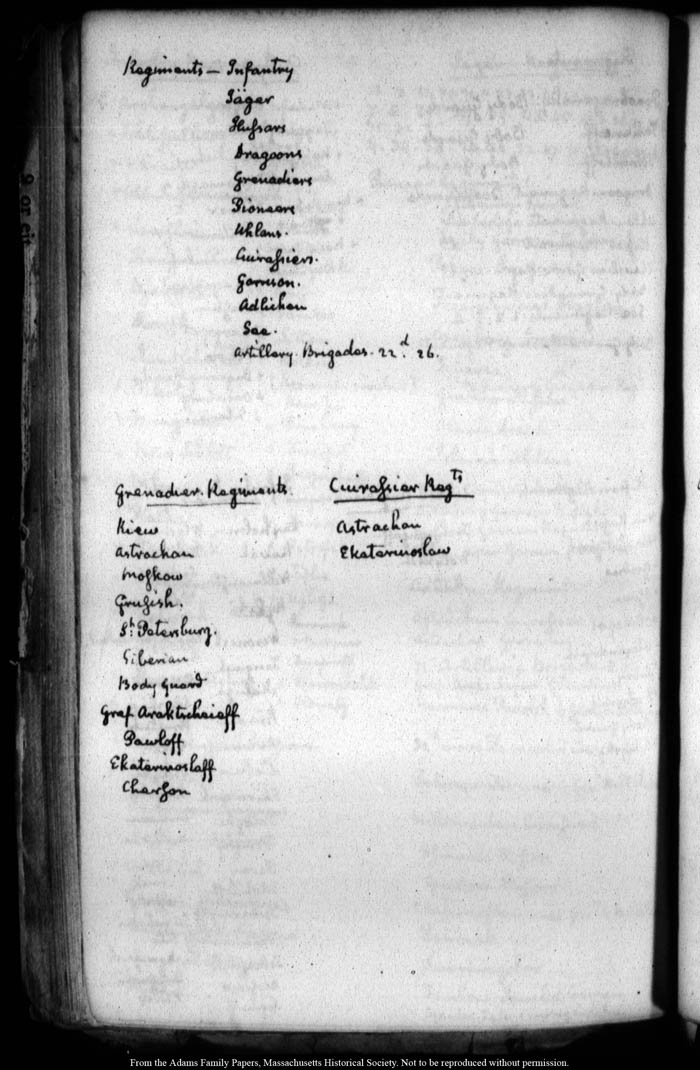 Regiments — Infantry
Jäger
Hussars
Dragoons
Grenadiers
Pioneers
Uhlans.
Cuirassiers.
Garrison.
Adlichen
See.
Artillery. Brigades. 22d. 26.
Grenadier Regiments.
Kiew
Astrachan
Moskow
Grusish.
St. Petersburg.
Siberian
Body Guard
Graf Araktscheieff
Pawloff
Ekaterinoslaff
Cherson
Cuirassier Regts
Astrachan
Ekaterinoslaw
From the Adams Family Papers, Massachusetts Historical Society. Not to be reproduced without permission.